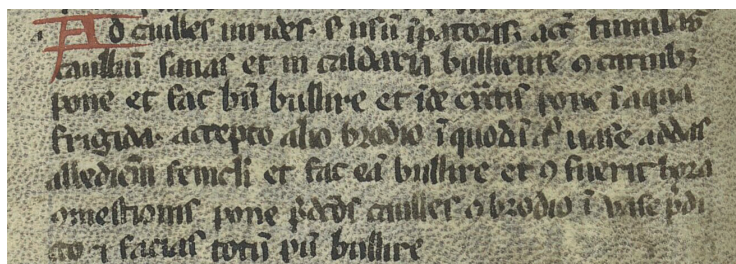 Ad caulles uirides. s usū īpatoris. acc̄ tumulos
caulliū sanas et in caldaria bulliente ɔ carnibꝫ
pone et fac bn̄ bullire et īde ext͛tis pone ī aqua
frigida. accepto alio brodio ī quodā uase addas
albedinē feniculi et fac eā bullire et ɔ fuerit hora
ɔmestionis pone p̄dc̄os caulles ɔ brodio ī uase p̄di
cto ⁊ facias totū bullire